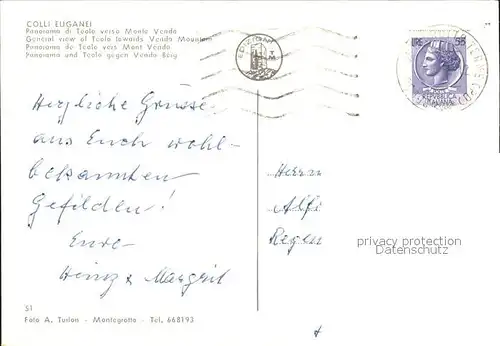 COLLI EUGANEI
Panorama di Teolo verso Monte Venda
General view of Teolo towards Venda Mountain
Panorama de Teolo vers Mont Venda
Panorama und Teolo gegen Venda Berg
EDIZIONI
T M
REPVBBLICA
ITALIANA
Herzliche Grüsse
aus Euch wohl-
bekannten
Gefilden!
Eure
Heinz & Margrit
Herrn
Alfi
Regen
privacy protection
Datenschutz
S1
Foto A. Turlon - Montegrotto - Tel. 668193